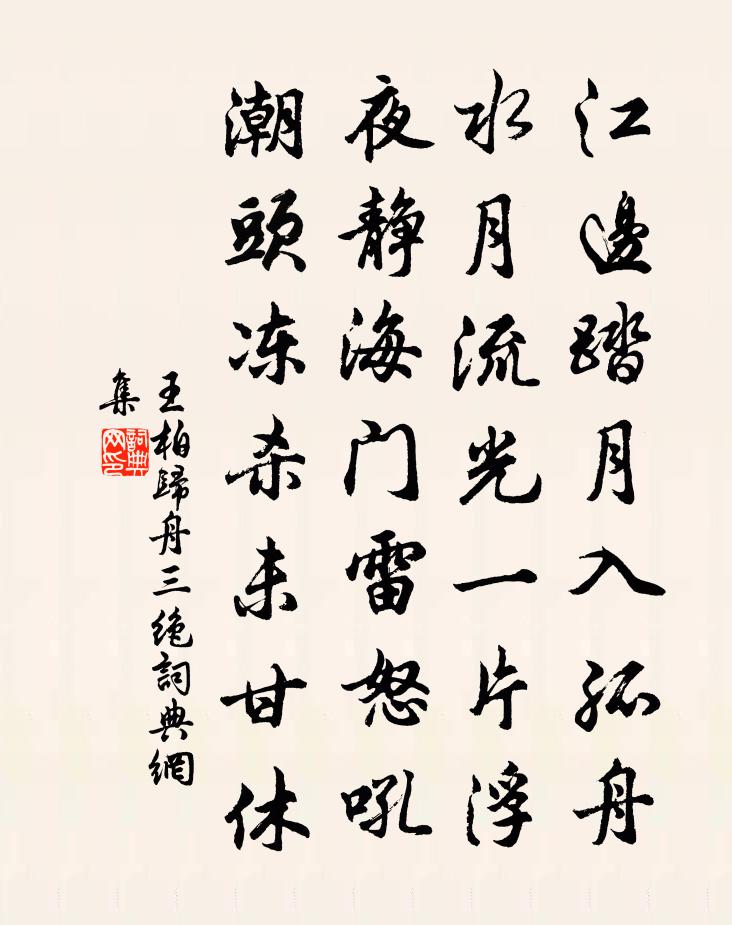 江邊踏月入孤舟
水月流光一片浮
夜靜海门雷怒吼
潮頭冻杀未甘休
王柏歸舟三絶詞典網
集
詞典
网印